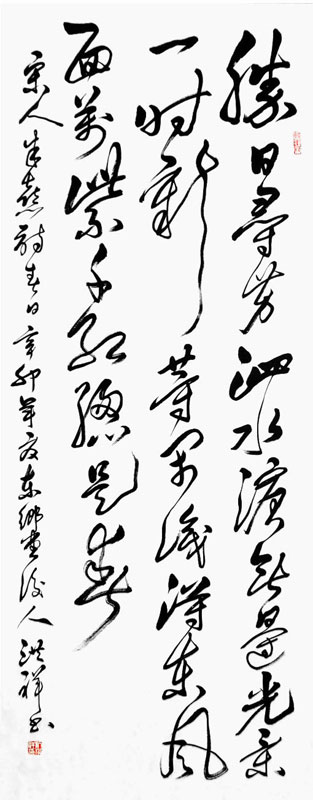 勝日尋芳泗水濱無邊光景
一时新等閒識得東風
面萬紫千紅總是春
宋人朱熹詩春日辛卯年夏東鄉後人洪祥書